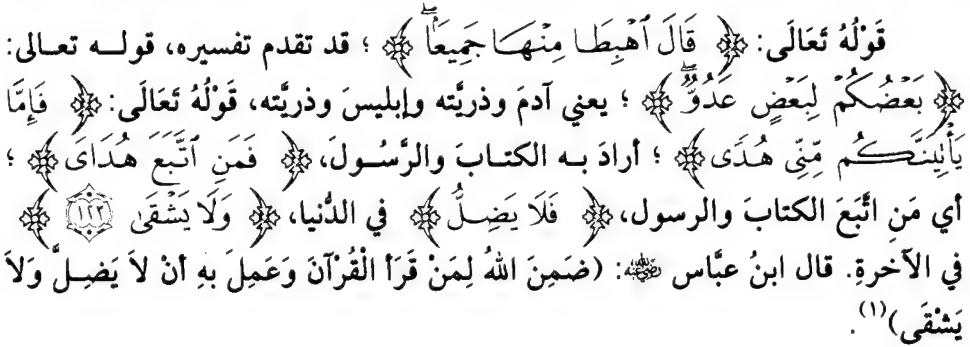 قَوْلُهُ تَعَالَى: ﴿ قَالَ ٱهْبِطَا مِنْهَا جَمِيعًۢا ﴾ ؛ قد تقدم تفسيره، قولـه تعـالى:
﴿ بَعْضُكُمْ لِبَعْضٍ عَدُوٌّ ﴾ ؛ يعني آدمَ وذريَّته وإبليسَ وذريَّته، قَوْلُهُ تَعَالَى: ﴿ فَإِمَّا
يَأْتِيَنَّكُم مِّنِّى هُدًى ﴾ ؛ أرادَ بـه الكتـابَ والرَّسُـولَ، ﴿ فَمَنِ ٱتَّبَعَ هُدَاىَ ﴾ ؛
أي مَنِ اتَّبَعَ الكتابَ والرسول، ﴿ فَلَا يَضِلُّ ﴾ في الدُّنيا، ﴿ وَلَا يَشْقَىٰ ١٢٣ ﴾
في الآخرةِ. قال ابنُ عبَّاس رضي الله عنه: (ضَمِنَ اللهُ لِمَنْ قَرَأَ الْقُرْآنَ وَعَمِلَ بهِ أنْ لاَ يَضِـلَّ وَلاَ
يَشْقَى)(١).